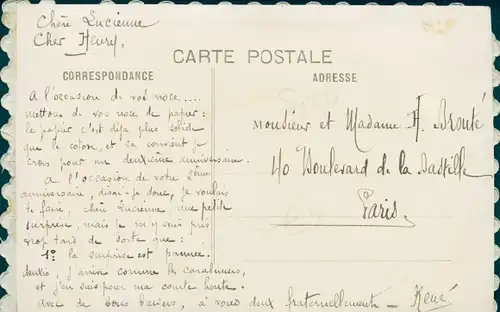 Chère Lucienne
Cher Henry,
CARTE POSTALE
CORRESPONDANCE
ADRESSE
A l'occasion de vos noce....
mettons de vos noce de papier :
le papier c'est déjà plus solide
que le coton, et ça convient je
crois pour un deuxième anniversaire.
A l'occasion de votre 2ème
anniversaire, disai-je donc, je voulais
te faire, chère Lucienne, une petite
surprise, mais je m'y suis pris
trop tard. de sorte que :
1º la surprise est
deuxio, j'arrive comme les carabiniers,
et j'en suis pour ma courte honte.
avec de bons baisers, à vous deux fraternellement - René
Monsieur et Madame H.
40 Boulevard de la Bastille
Paris.